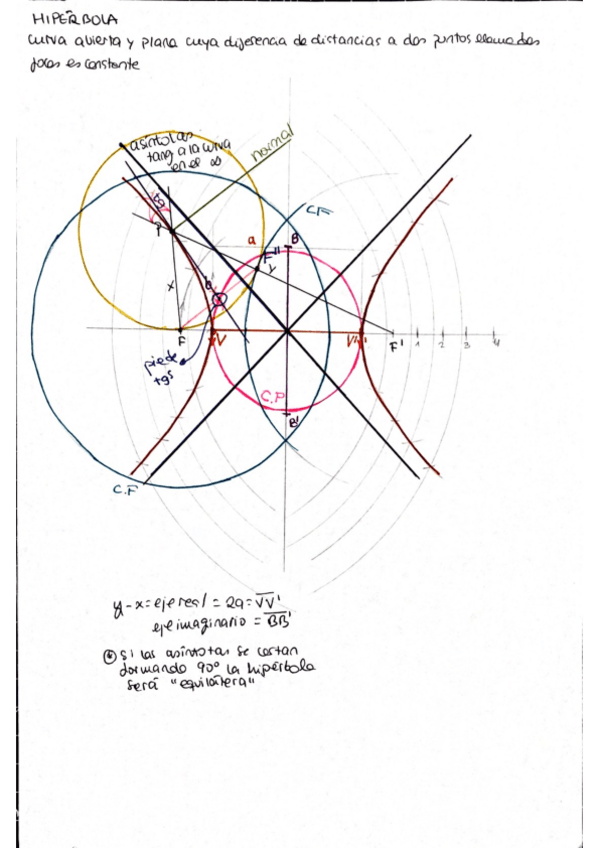 HIPÉRBOLA
curva abierta y plana cuya diferencia de distancias a dos puntos llamados
focos es constante
asíntotas
tang a la curva
en el ∞
normal
tg
P
C.F
a
B
F''
y
b
x
F
V
V'
F'
1
2
3
4
pie de
tgs
C.P
B'
C.F
y-x = eje real = 2a = VV'
eje imaginario = BB'
Si las asíntotas se cortan
formando 90° la hipérbola
será "equilátera"